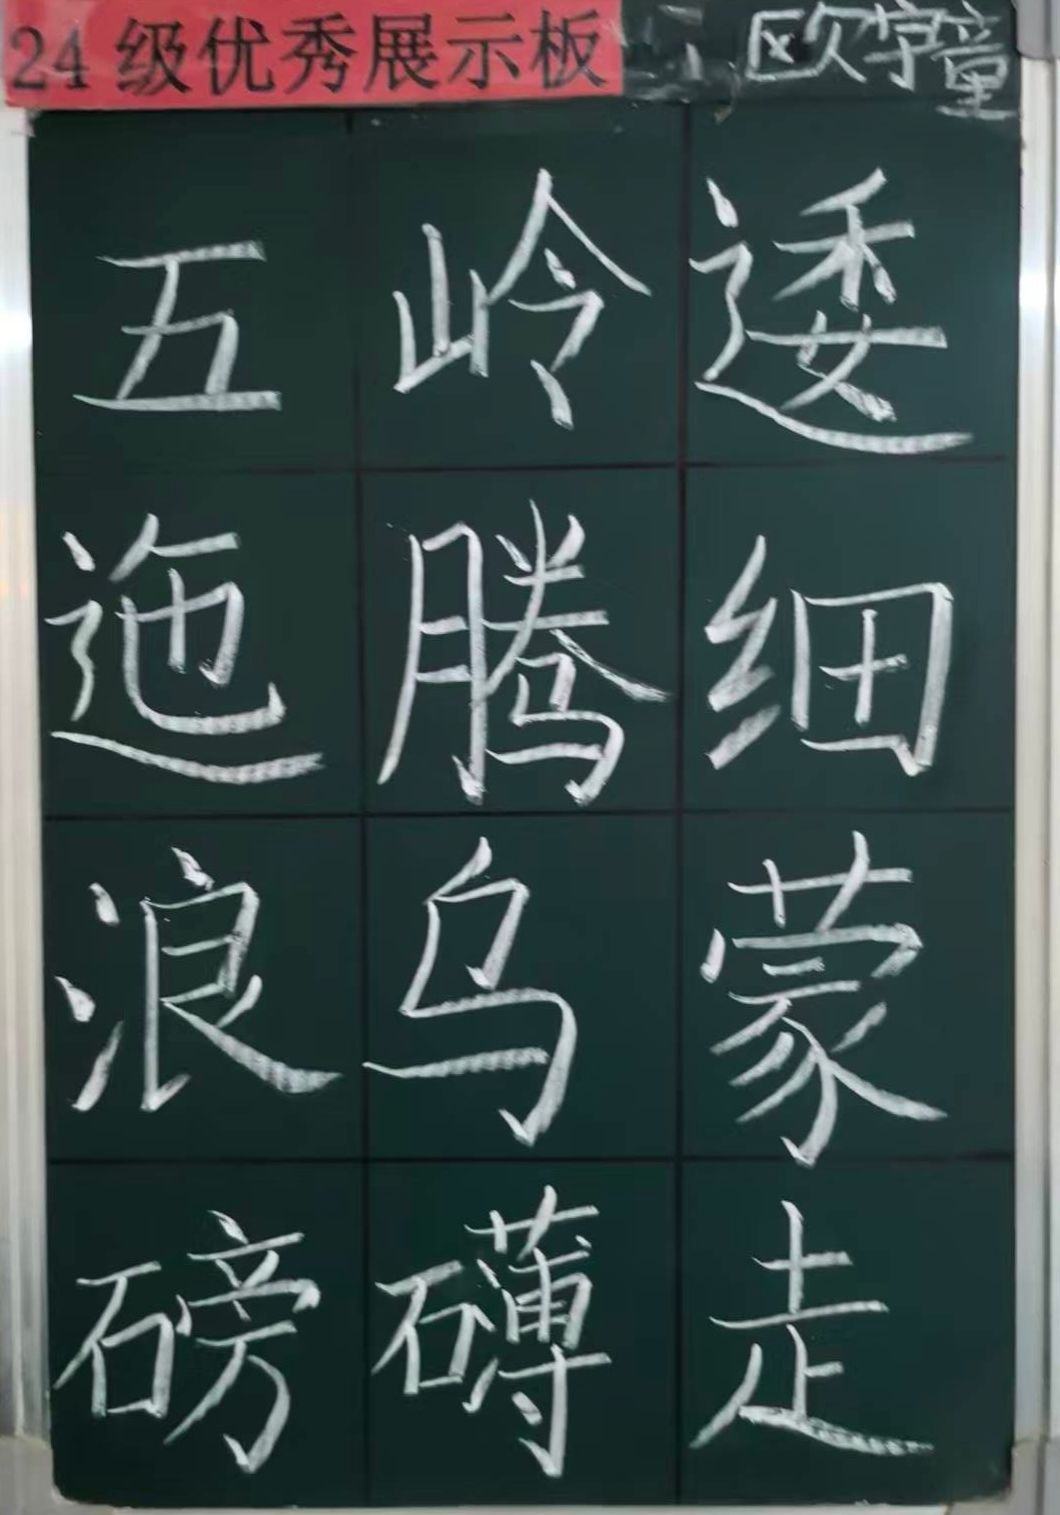 24级优秀展示板
欧字童
五岭逶
迤腾细
浪乌蒙
磅礴走